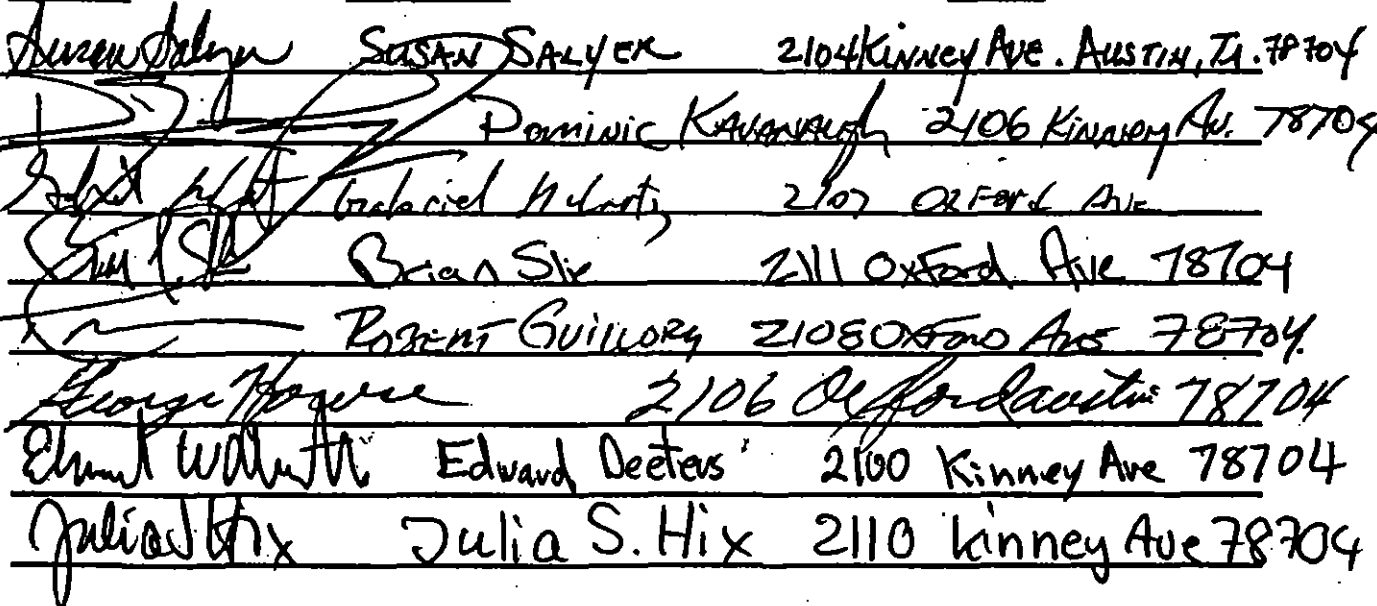 Susan Salyer SUSAN SALYER 2104 KINNEY AVE. AUSTIN, TX. 78704
Dominic KAVANAUGH 2106 KINNEY AV. 78704
Gabriel 2107 Oxford Ave
Brian Slie 2111 Oxford Ave 78704
ROBERT GUILLORY 2108 OXFORD AVE 78704.
George 2106 Oxford austin 78704
Edward Deeters 2100 Kinney Ave 78704
Julia S Hix Julia S. Hix 2110 Kinney Ave 78704